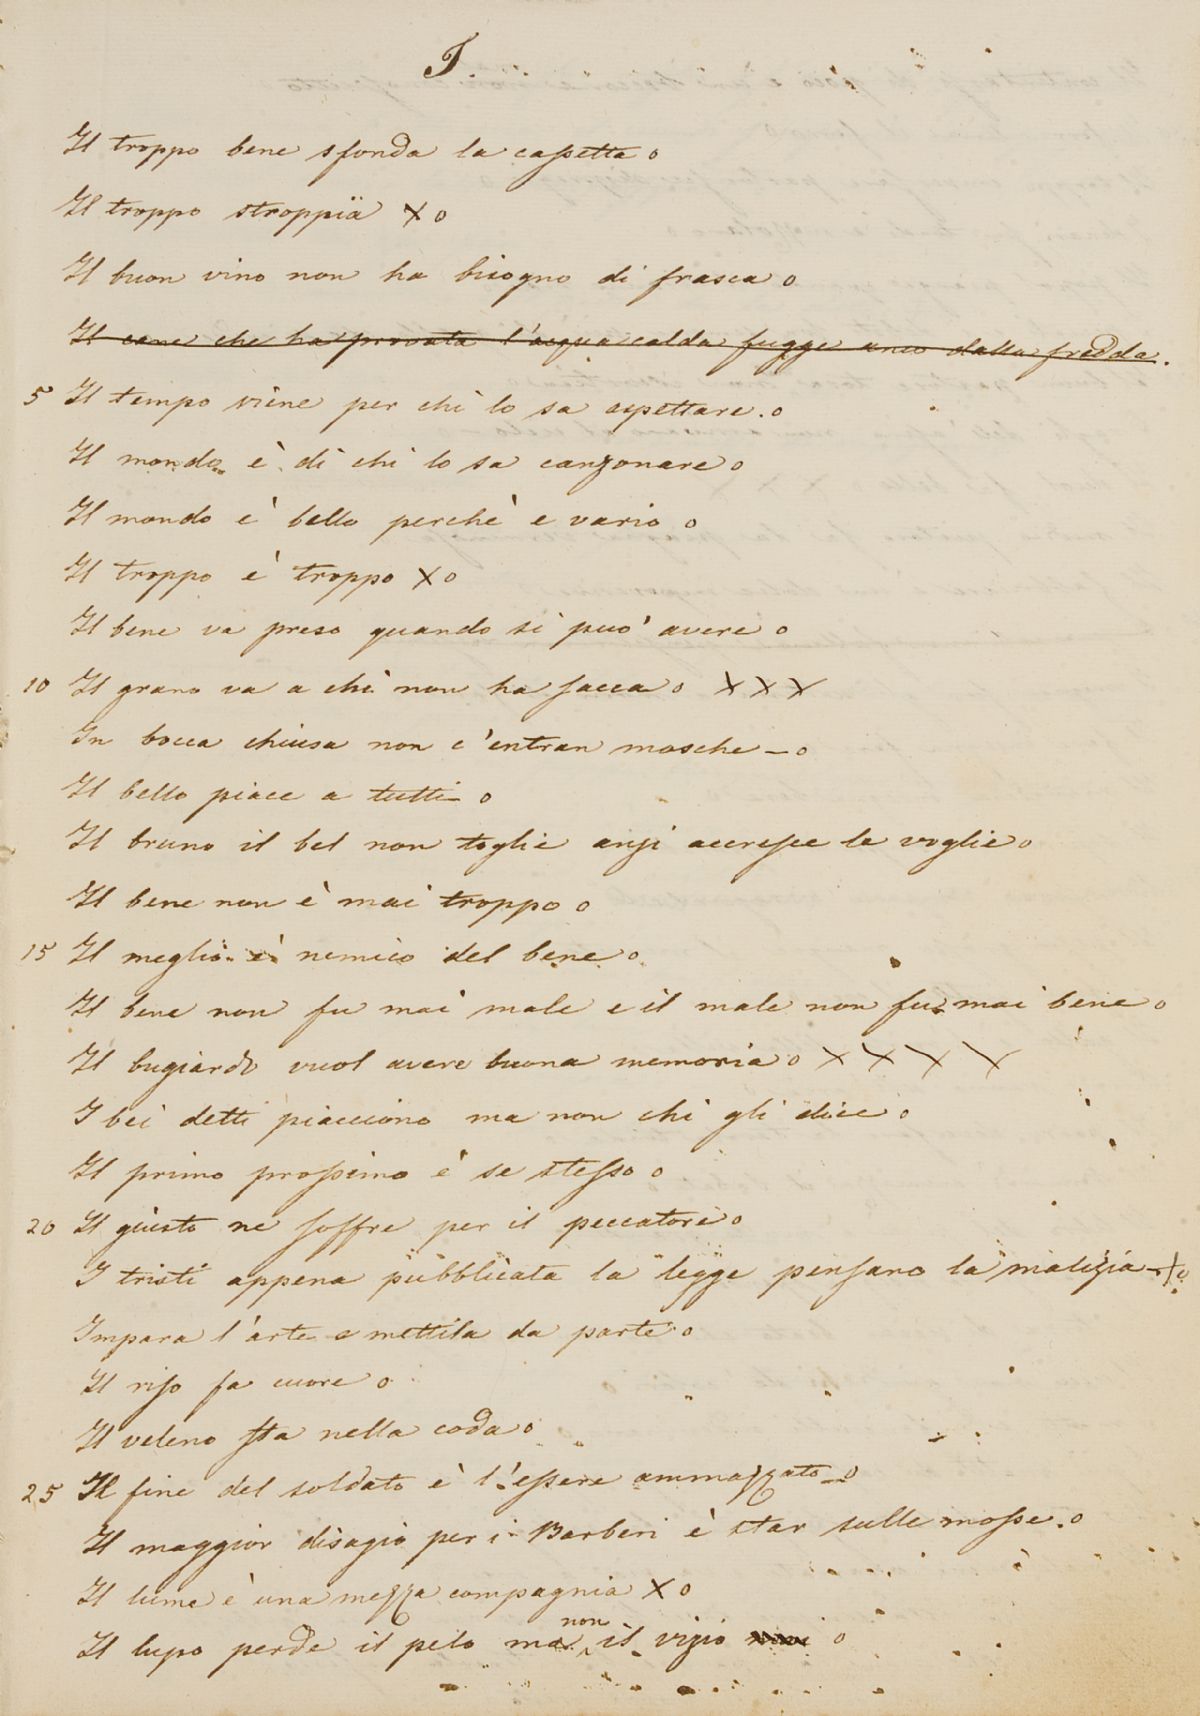 I.
Il troppo bene sfonda la cassetta o
Il troppo stroppia X o
Il buon vino non ha bisogno di frasca o
Il cane che ha provata l'acqua calda fugge anco dalla fredda.
5 Il tempo viene per chi lo sa aspettare. o
Il mondo è di chi lo sa canzonare o
Il mondo è bello perchè e vario o
Il troppo è troppo X o
Il bene va preso quando si può avere o
10 Il grano va a chi non ha sacca o X X X
In bocca chiusa non c'entran mosche - o
Il bello piace a tutti o
Il bruno il bel non toglie anzi accresce le voglie o
Il bene non è mai troppo o
15 Il meglio è nemico del bene o
Il bene non fu mai male e il male non fu mai bene o
Il bugiardo vuol avere buona memoria o X X X X
I bei detti piacciono ma non chi gli dice o
Il primo prossimo è se stesso o
20 Il giusto ne soffre per il peccatore o
I tristi appena pubblicata la legge pensano la malizia - X o
Impara l'arte e mettila da parte o
Il riso fa cuore o
Il veleno sta nella coda o
25 Il fine del soldato è l'essere ammazzato - o
Il maggior disagio per i Barberi è star sulle mosse. o
Il lume è una mezza compagnia X o
Il lupo perde il pelo ma non il vizio o